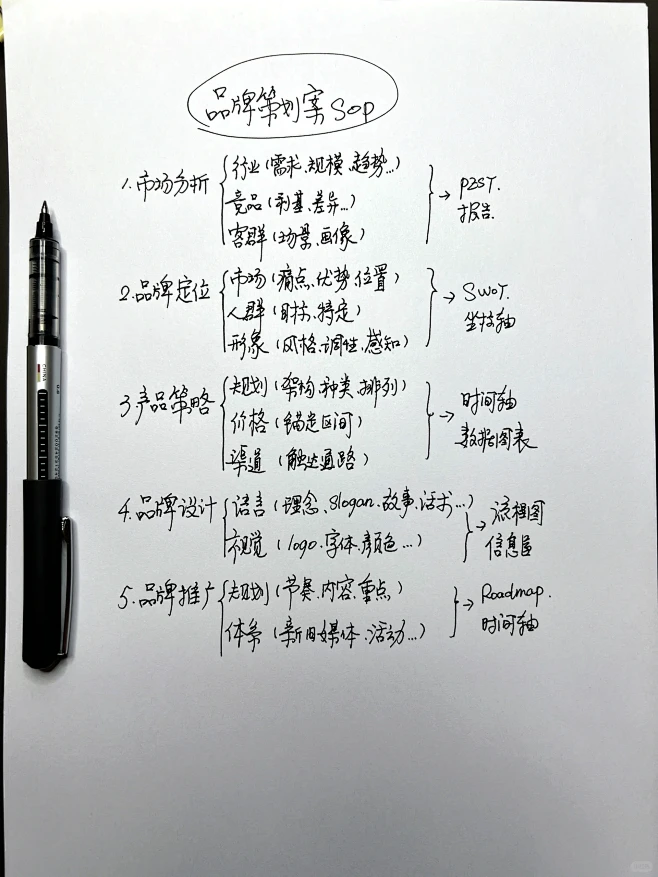 品牌策划案 Sop
1.市场分析
行业(需求、规模、趋势...)
竞品(利基、差异...)
客群(场景、画像)
→ PEST.
报告
2.品牌定位
市场(痛点、优势、位置)
人群(目标、特定)
形象(风格、调性、感知)
→ SWOT.
坐标轴
3.产品策略
规划(架构、种类、排列)
价格(锚定区间)
渠道(触达通路)
→ 时间轴
数据图表
4.品牌设计
语言(理念、Slogan、故事、话术...)
视觉(logo、字体、颜色...)
→ 流程图
信息图
5.品牌推广
规划(节奏、内容、重点)
体系(新旧媒体、活动...)
→ Roadmap.
时间轴
CHINA